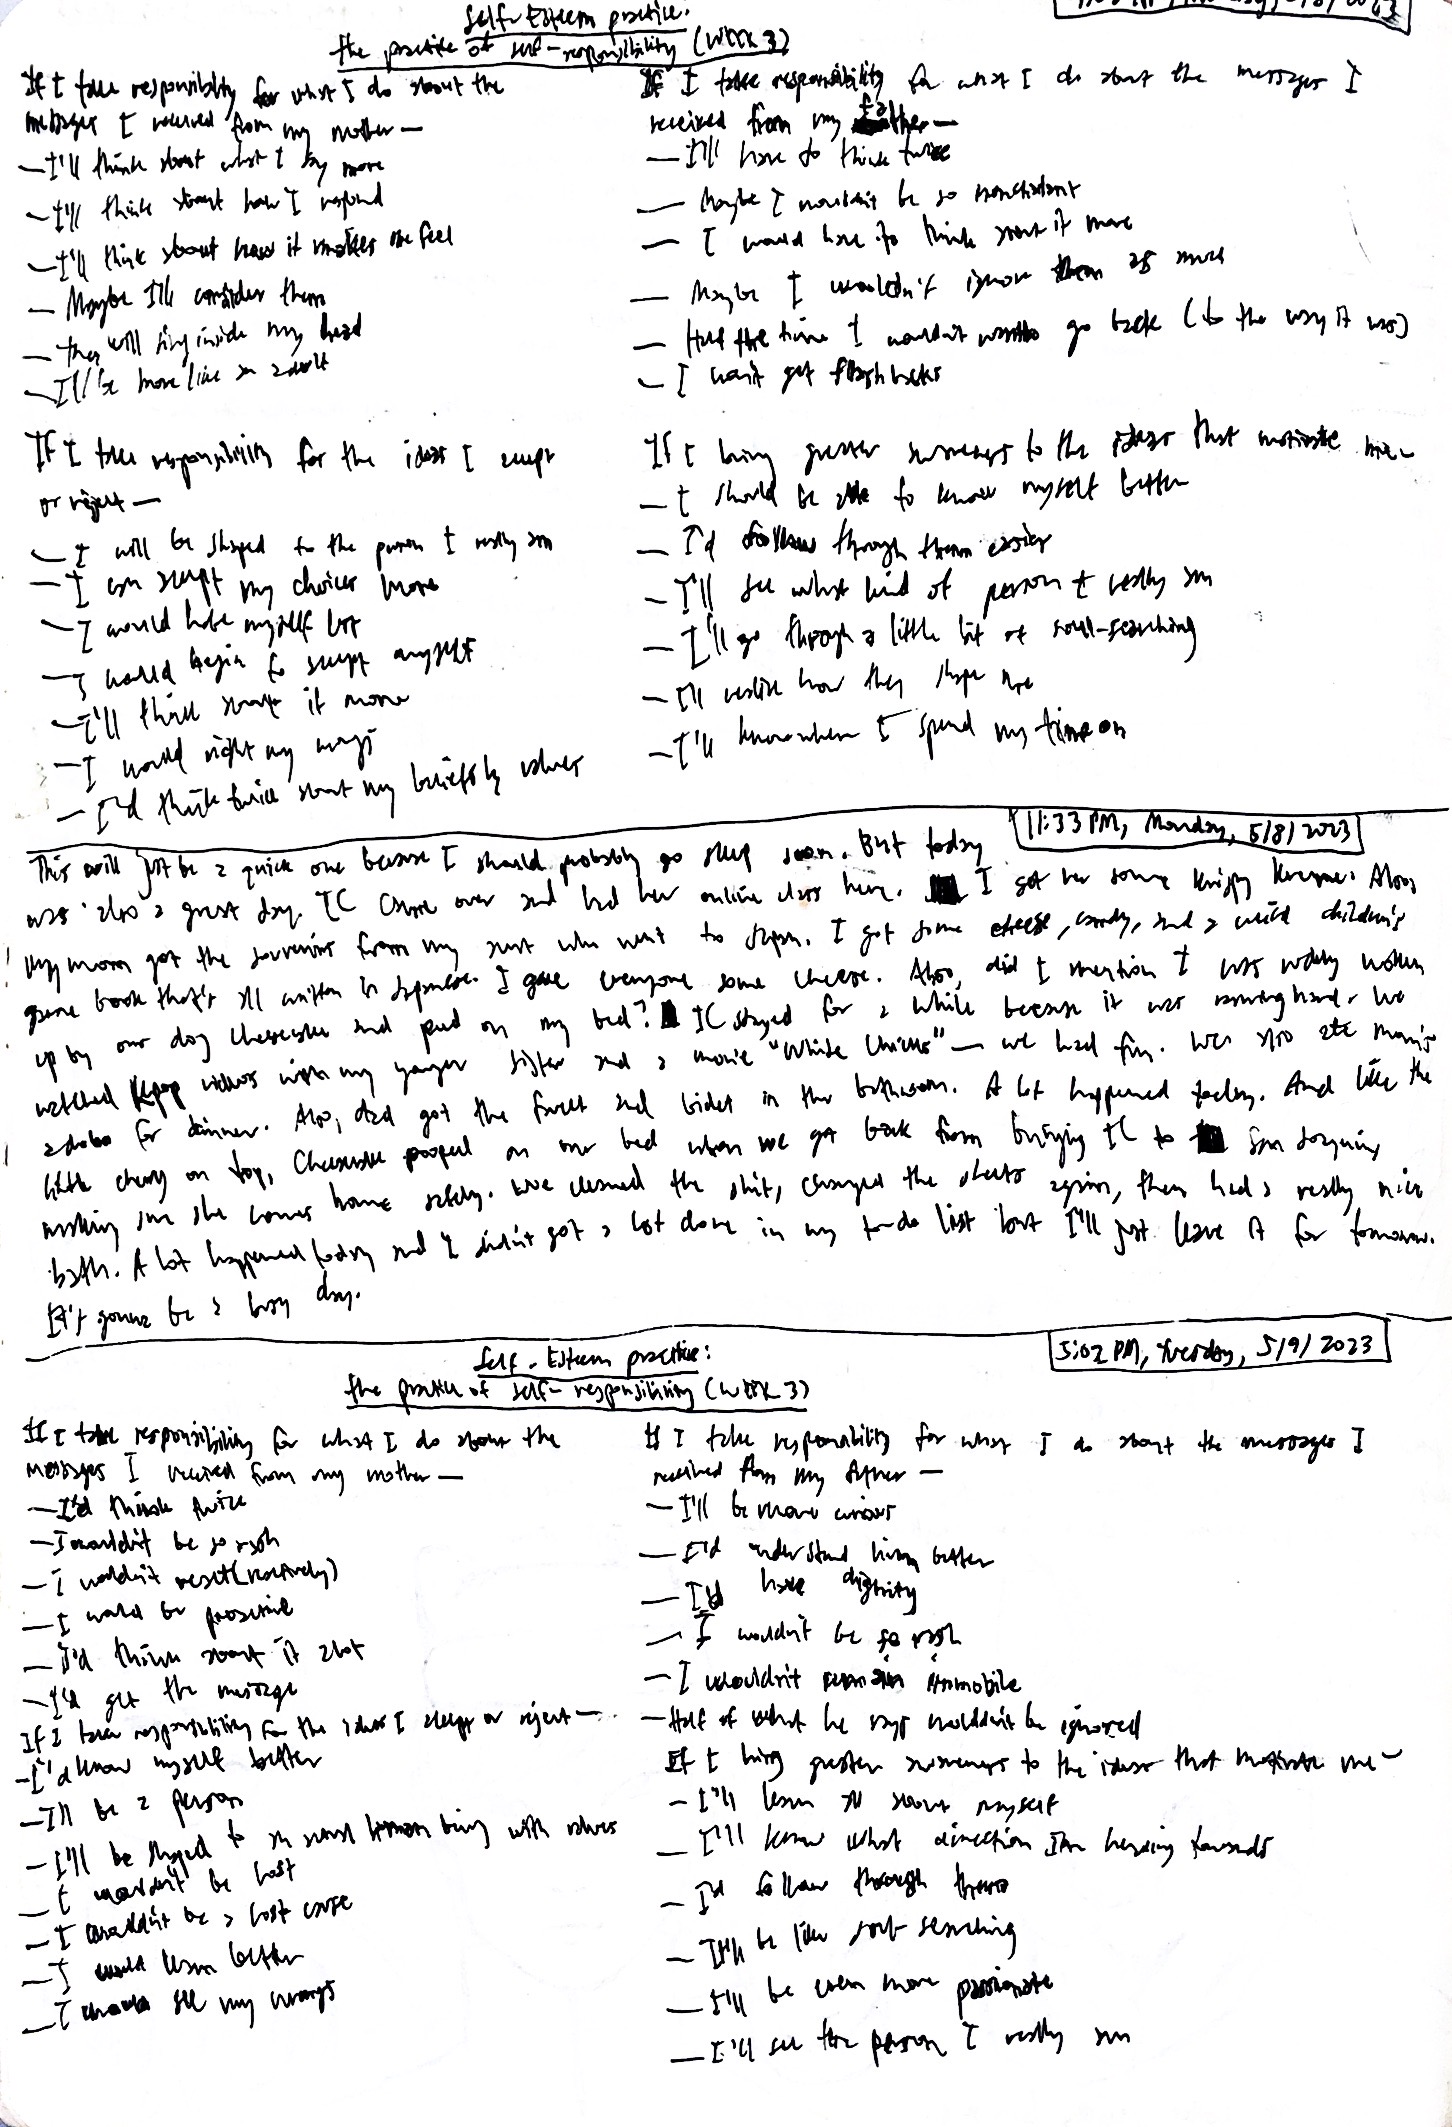 Self-Esteem practice:
the practice of self-responsibility (Week 3)
If I take responsibility for what I do about the
messages I received from my mother —
— I'll think about what I say more
— I'll think about how I respond
— I'll think about how it makes me feel
— Maybe I'll consider them
— they will ring inside my head
— I'll be more like an adult
If I take responsibility for what I do about the messages I
received from my father —
— I'll have to think twice
— Maybe I wouldn't be so nonchalant
— I would have to think about it more
— Maybe I wouldn't ignore them as much
— Half the time I wouldn't want to go back (to the way it was)
— I won't get flashbacks
If I take responsibility for the ideas I accept
or reject —
— I will be shaped to the person I really am
— I can accept my choices more
— I would hate myself less
— I would begin to accept myself
— I'll think about it more
— I would right my wrongs
— I'd think twice about my beliefs & values
If I bring greater awareness to the ideas that motivate me —
— I should be able to know myself better
— I'd follow through them easier
— I'll see what kind of person I really am
— I'll go through a little bit of soul-searching
— I'll realize how they shape me
— I'll know where I spend my time on
11:33 PM, Monday, 5/8/2023
This will just be a quick one because I should probably go sleep soon. But today
was also a great day. IC came over and had her online class here. I got her some Krispy Kreme. Also,
my mom got the souvenirs from my aunt who went to Japan. I got some cheese, candy, and a weird children's
game book that's all written in Japanese. I gave everyone some cheese. Also, did I mention I was rudely woken
up by our dog Cheesecake and peed on my bed? IC stayed for a while because it was raining hard. We
watched Kpop videos with my younger sister and a movie "White Chicks" — we had fun. We also ate mom's
adobo for dinner. Also, dad got the faucet and bidet in the bathroom. A lot happened today. And like the
little cherry on top, Cheesecake pooped on our bed when we got back from bringing IC to
making sure she comes home safely. We cleaned the shit, changed the sheets again, then had a really nice
bath. A lot happened today and I didn't get a lot done in my to-do list but I'll just leave it for tomorrow.
It's gonna be a busy day.
5:02 PM, Tuesday, 5/9/2023
Self-Esteem practice:
the practice of self-responsibility (Week 3)
If I take responsibility for what I do about the
messages I received from my mother —
— I'd think twice
— I wouldn't be so rash
— I wouldn't react (reactively)
— I would be proactive
— I'd think about it alot
— I'd get the message
If I take responsibility for what I do about the messages I
received from my father —
— I'll be more curious
— I'd understand him better
— I'd have dignity
— I wouldn't be so rash
— I wouldn't remain immobile
— Half of what he says wouldn't be ignored
If I take responsibility for the ideas I accept or reject —
— I'd know myself better
— I'll be a person
— I'll be shaped to an actual human being with values
— I wouldn't be lost
— I wouldn't be a lost cause
— I would learn better
— I would see my wrongs
If I bring greater awareness to the ideas that motivate me —
— I'll learn all about myself
— I'll know what direction I'm heading towards
— I'd follow through them
— It'll be like soul searching
— I'll be even more passionate
— I'll see the person I really am